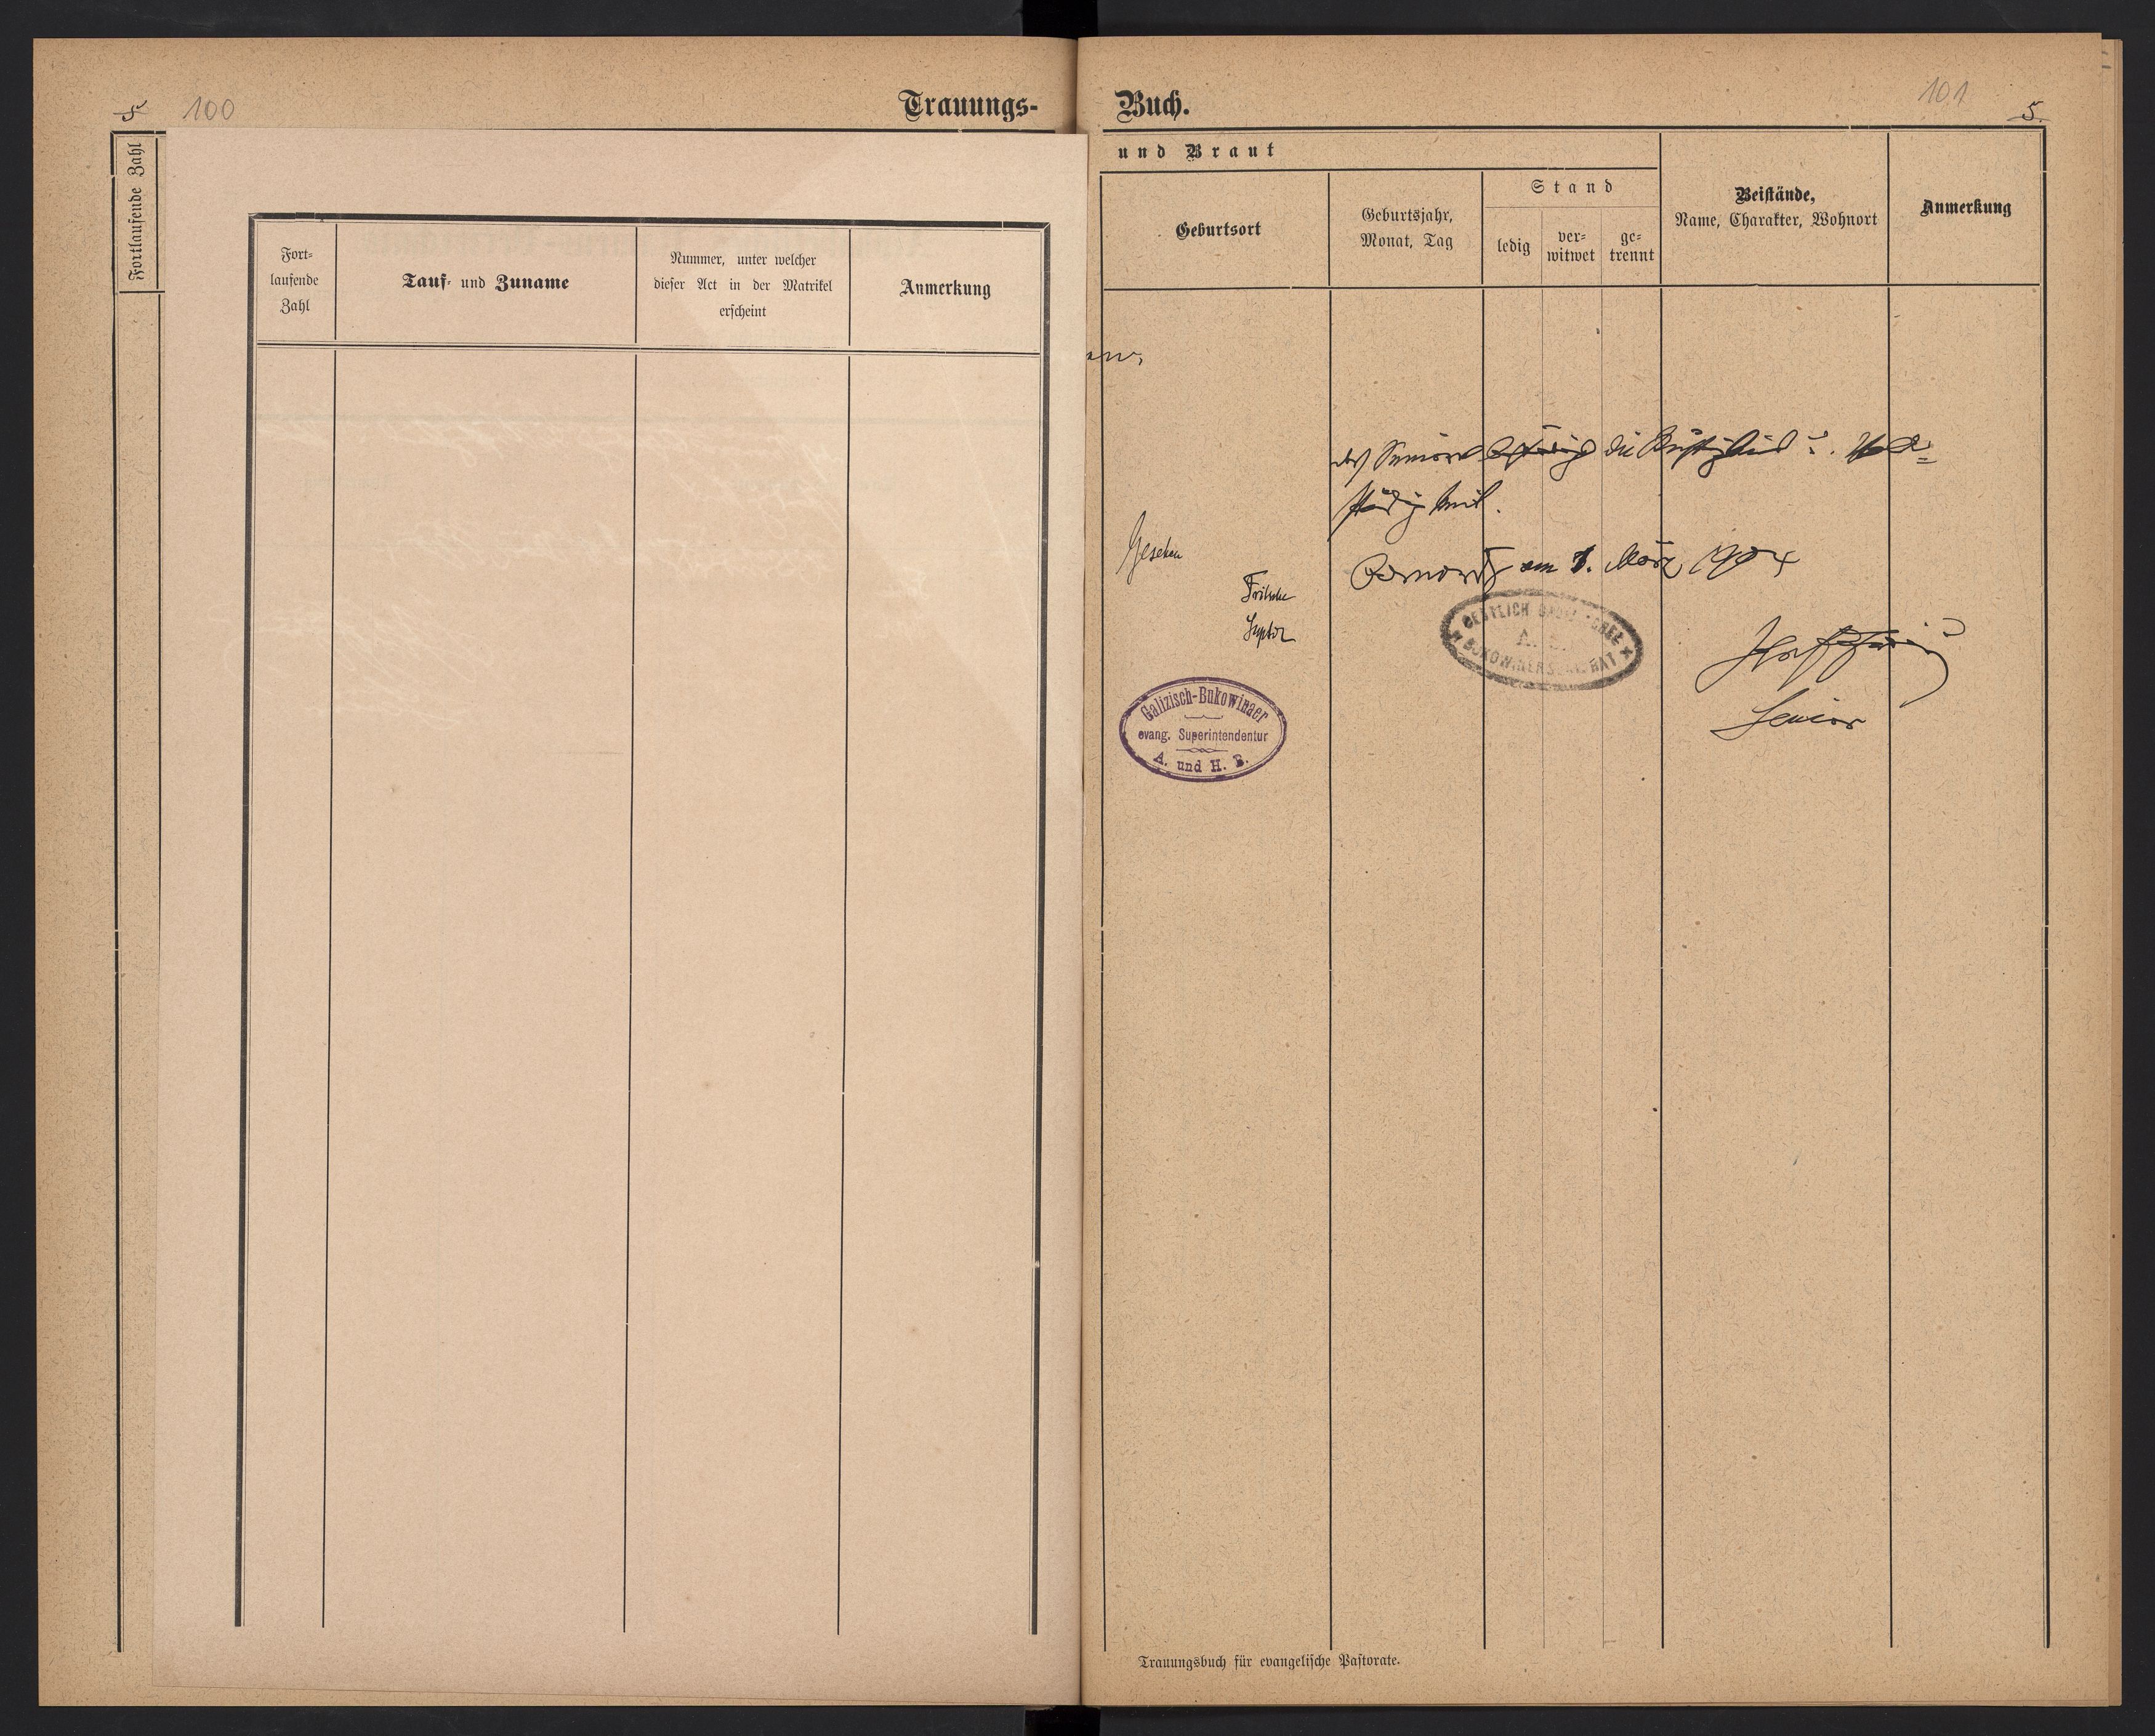 5 100
Trauungs-
Fortlaufende Zahl
Fort-
laufende
Zahl
Tauf- und Zuname
Nummer, unter welcher
dieser Act in der Matrikel
erscheint
Anmerkung
Buch.
101 5.
und Braut
Geburtsort
Geburtsjahr,
Monat, Tag
Stand
ledig
ver-
witwet
ge-
trennt
Beistände,
Name, Charakter, Wohnort
Anmerkung
die Richtigkeit u. Voll-
ständigkeit.
Gesehen
am 1. März 1904
Fritsche
Suptdt
A.
Senior
Galizisch-Bukowinaer
evang. Superintendentur
A. und H. B.
Trauungsbuch für evangelische Pastorate.